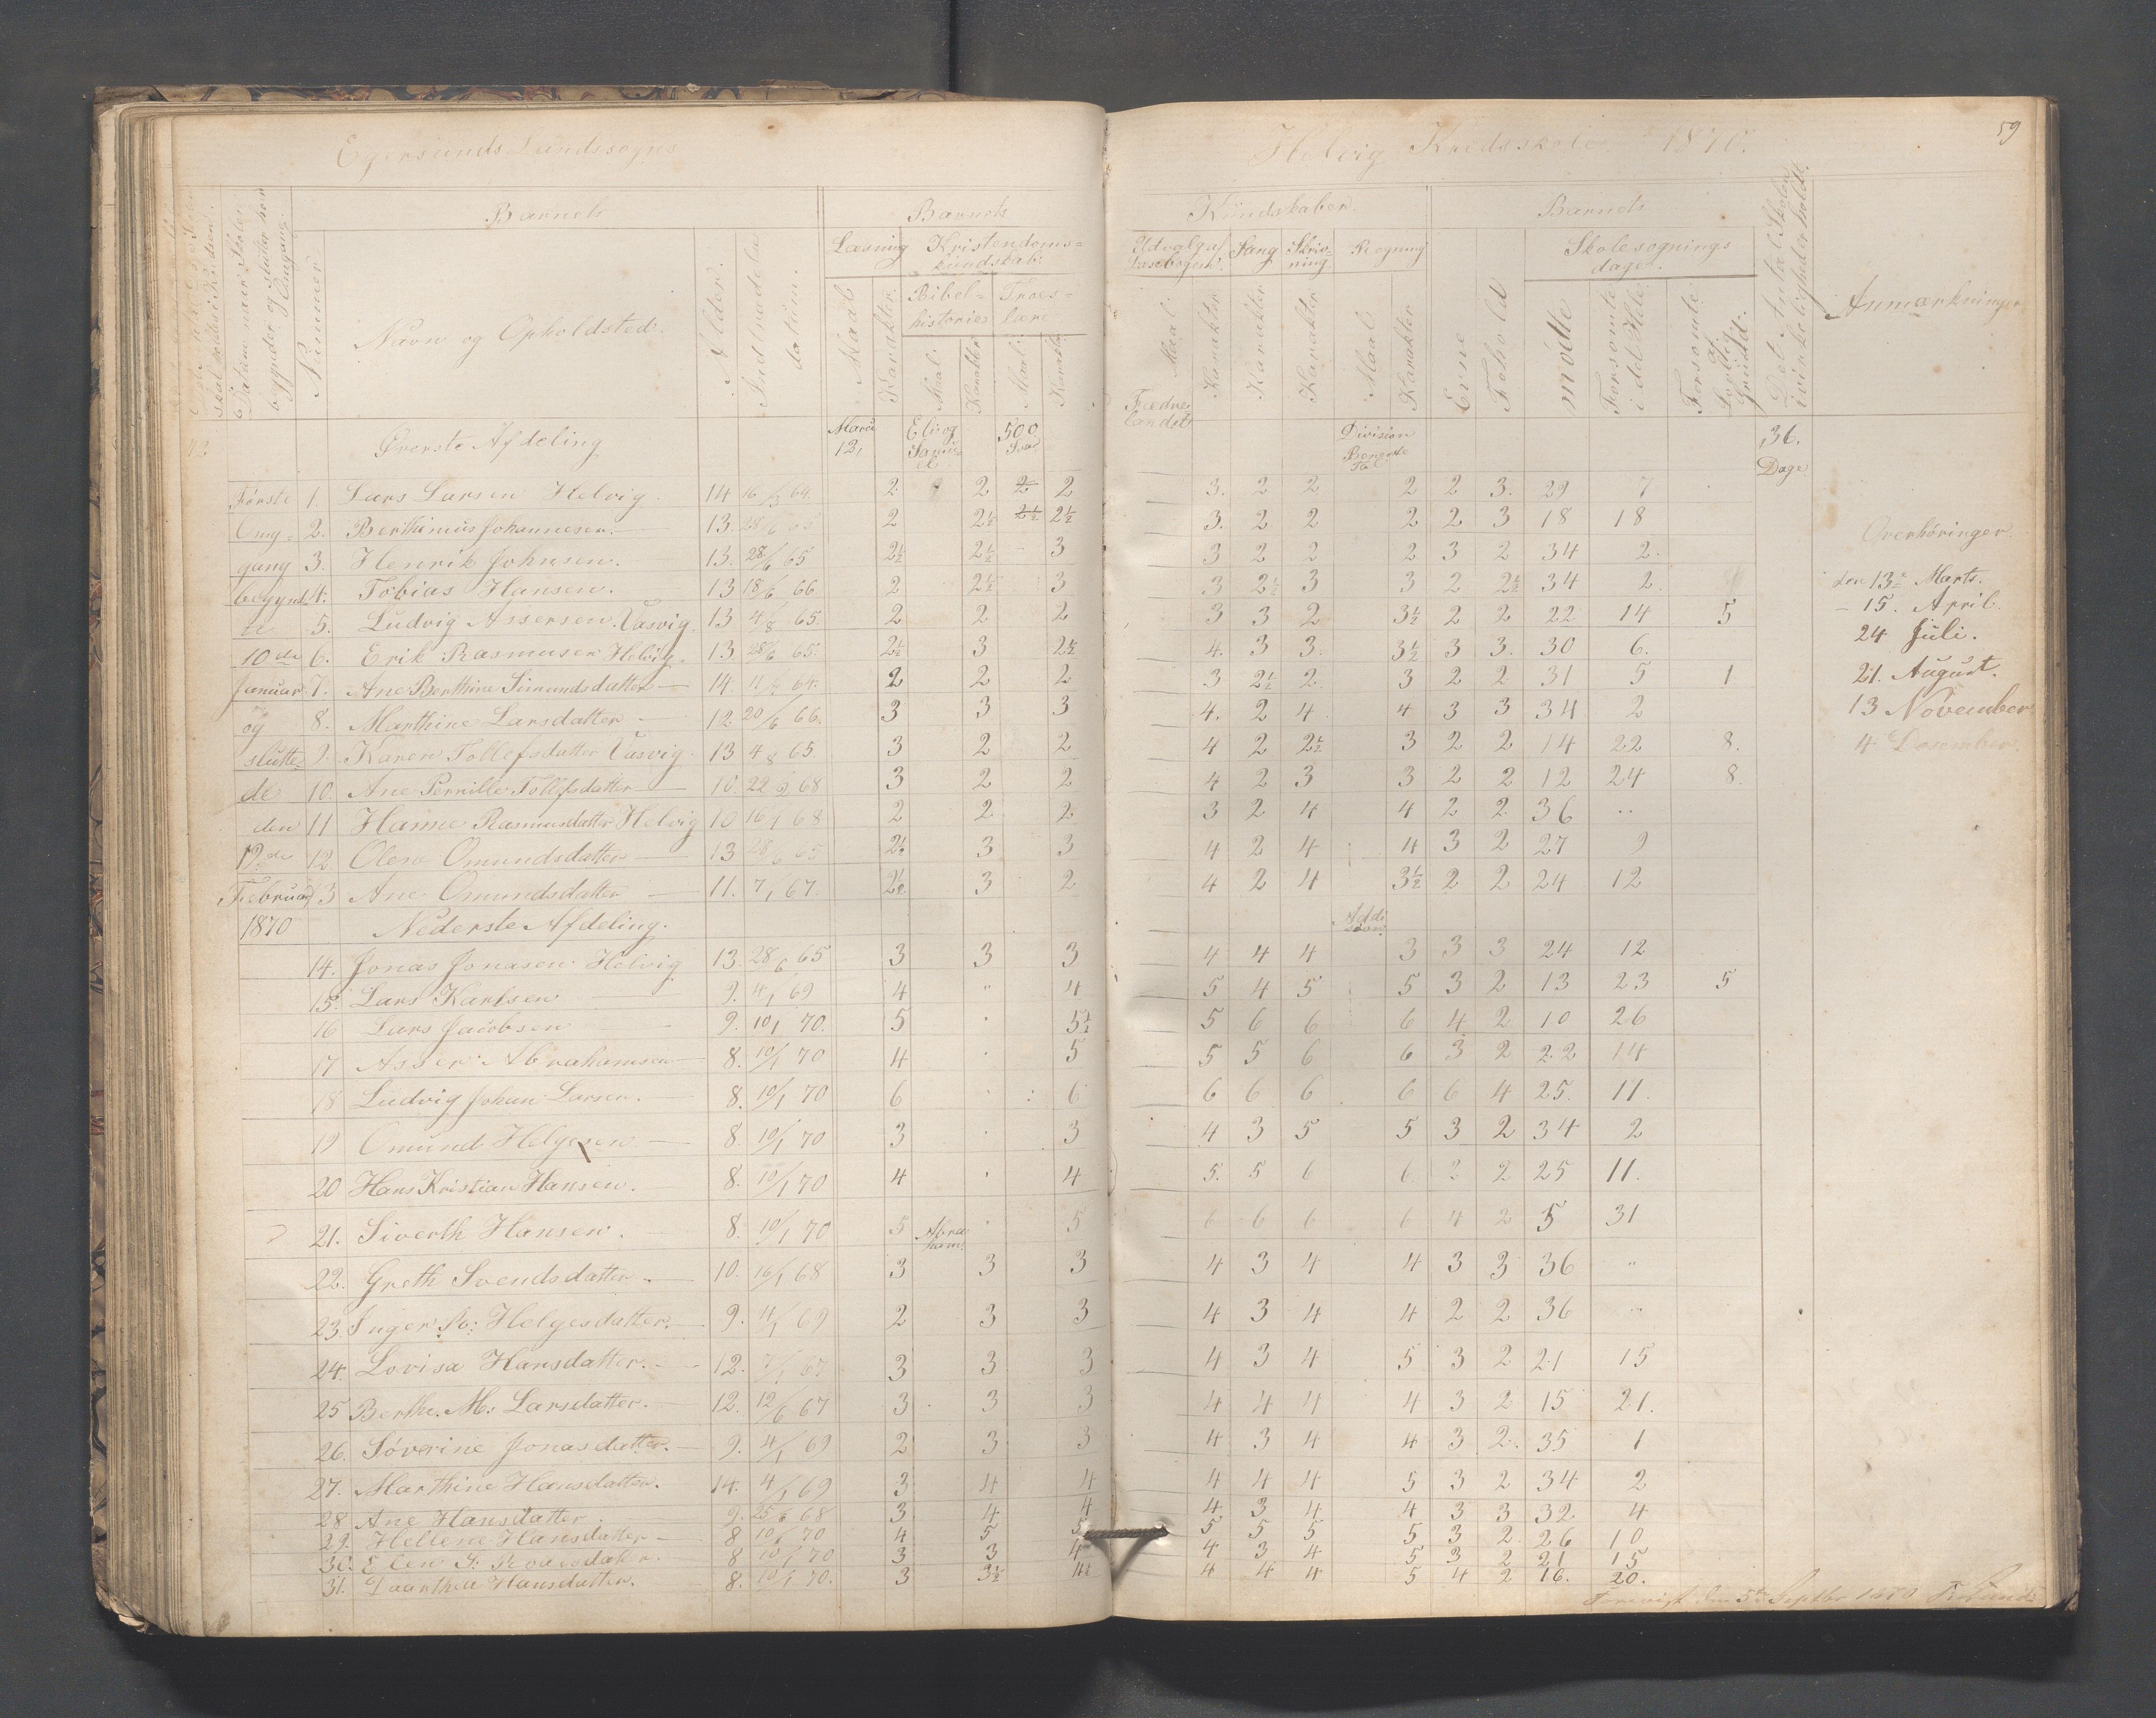 Egersunds Landssogns
Helvig Kredsskole 1870.
59
Barnets
Barnets
Kundskaber.
Barnets
Datum naar Skolen begynder og slutter hver Omgang.
Nummer
Navn og Opholdsted.
Alder.
Indtrædelse datum.
Læsning
Kristendoms=
kundskab.
Bibel=
historie
Troes=
lære
Maal
Karakter
Maal
Karakter
Maal
Karakter
Udvalg af
Læsebogen.
Sang
Skriv=
ning.
Regning
Maal
Karakter
Karakter
Karakter
Maal
Karakter
Evne
Forhold
Skolesøgnings
dage.
mötte
Forsömte i det Hele
Forsömte af Lovlig Grund.
Det Antal Skolen i virkeligheden holdt.
Anmærkninger
Øverste Afdeling
12,
Eli og
Samu=
el
500
Svar
Fædre
landet
Division
Benævnte
Tal
36.
Dage
Første 1. Lars Larsen Helvig. 14 16/3 64. 2 2 2 2 3. 2 2 2 2 3. 29 7
Omg= 2. Berthinius Johannesen. — 13 28/6 65 2 2½ 2½ 2½ 3. 2 2 2 2 3 18 18
gang 3. Henrik Johnsen. — 13. 28/6 65 2½ 2½ 3 3 2 2 2 3 2 34 2.
begynd 4. Tobias Hansen. 13 18/6 66 2 2½ 3 3 2½ 3 3 2 2½ 34 2
te 5. Ludvig Assersen. Vasvig. 13 4/8 65. 2 2 2 3 3 2 3½ 2 2 22 14 5
10de 6. Erik Rasmusen Helvig. 13 28/6 65. 2½ 3 2½ 4. 3 3. 3½ 3 3. 30 6.
Januar 7. Ane Berthine Simundsdatter — 14. 11/7 64. 2 2 2 3 2½ 2 3 2 2 31 5 1
og 8. Marthine Larsdatter — 12. 20/6 66. 3 3 3 4. 2 4 4 3 3 34 2
slutte= 9. Karen Tollefsdatter Vasvig. 13 4/8 65. 3 2 2 4 2 2½ 3 2 2 14 22 8.
de 10. Ane Pernille Tollefsdatter — 10. 22/2 68 3 2 2 4 2 3 3 2 2 12 24 8.
den 11 Hanne Rasmusdatter Helvig 10 16/1 68 2 2 2 3 2 4 4 2 2 36 ..
12de 12 Olene Omundsdatter — 13 28/6 65 2½ 3 3 4 2 4 4 3 2 27 9
Februar 13 Ane Omundsdatter — 11. 7/1 67. 2½ 3 2 4 2 4 3½ 2 2 24 12
1870 Nederste Afdeling.
Addi
tion
14. Jonas Jonasen Helvig 13. 28/6 65 3 3 3 4 4 4 3 3 3 24 12
15. Lars Karlsen — 9. 4/1 69 4 " 4 5 4 5 5 3 2 13 23 5
16 Lars Jacobsen — 9. 10/1 70. 5 5½ 5 6 6 6 4 2 10 26
17 Asser Abrahamsen — 8. 10/1 70 4 5 5 5 6 6 3 2 22 14
18 Ludvig Johan Larsen. — 8. 10/1 70 6 6 6 6 6 6 6 4 25. 11.
19 Omund Helgesen — 8. 10/1 70 3 3 4 3 5 5 3 2 34 2
20 Hans Kristian Hansen. 8. 10/1 70 4 4 5. 5 6 6 2 2 25 11.
21. Siverth Hansen. 8. 10/1 70 5 5 6 6 6 6 4 2 5 31
Abra
ham.
22. Greth Svendsdatter — 10. 16/1 68 3 3 3 4 3 4 4 3 3 36 "
23 Inger Ro: Helgesdatter. 9. 4/1 69 2 3 3 4 3 4 4 2 2 36 "
24. Lovisa Hansdatter. — 12. 7/1 67 3 3 3 4 3 4 5 3 2 21 15
25 Berthe. M: Larsdatter. 12. 12/6 67 3 3 3 4 4 4 4 3 2 15 21.
26. Söverine Jonasdatter. — 9. 4/1 69 2 3 3 4 3 4 4 3 2. 35 1
27. Marthine Hansdatter. 14. 4/1 69 3 4 4 4 4 4 5 3 2 34 2
28 Ane Hansdatter. 9. 25/6 68 3 4 4 4 3 4 4 3 3 32 4
29. Hellene Hansdatter — 8 10/1 70 4 5 5 5 5 5 5 3 2 26 10
30. Elen S. 8 10/1 70 3 3 4 4 3 4 5 3 2 21 15
31. Daarthea Hansdatter. 8. 10/1 70. 3 3½ 4½ 4 4 4 5 4 2 16. 20.
Overhöringer.
den 13de Marts.
— 15. April.
24 Juli.
21. August.
13 November
4 Desember
Forevist den 5te Septbr 1870